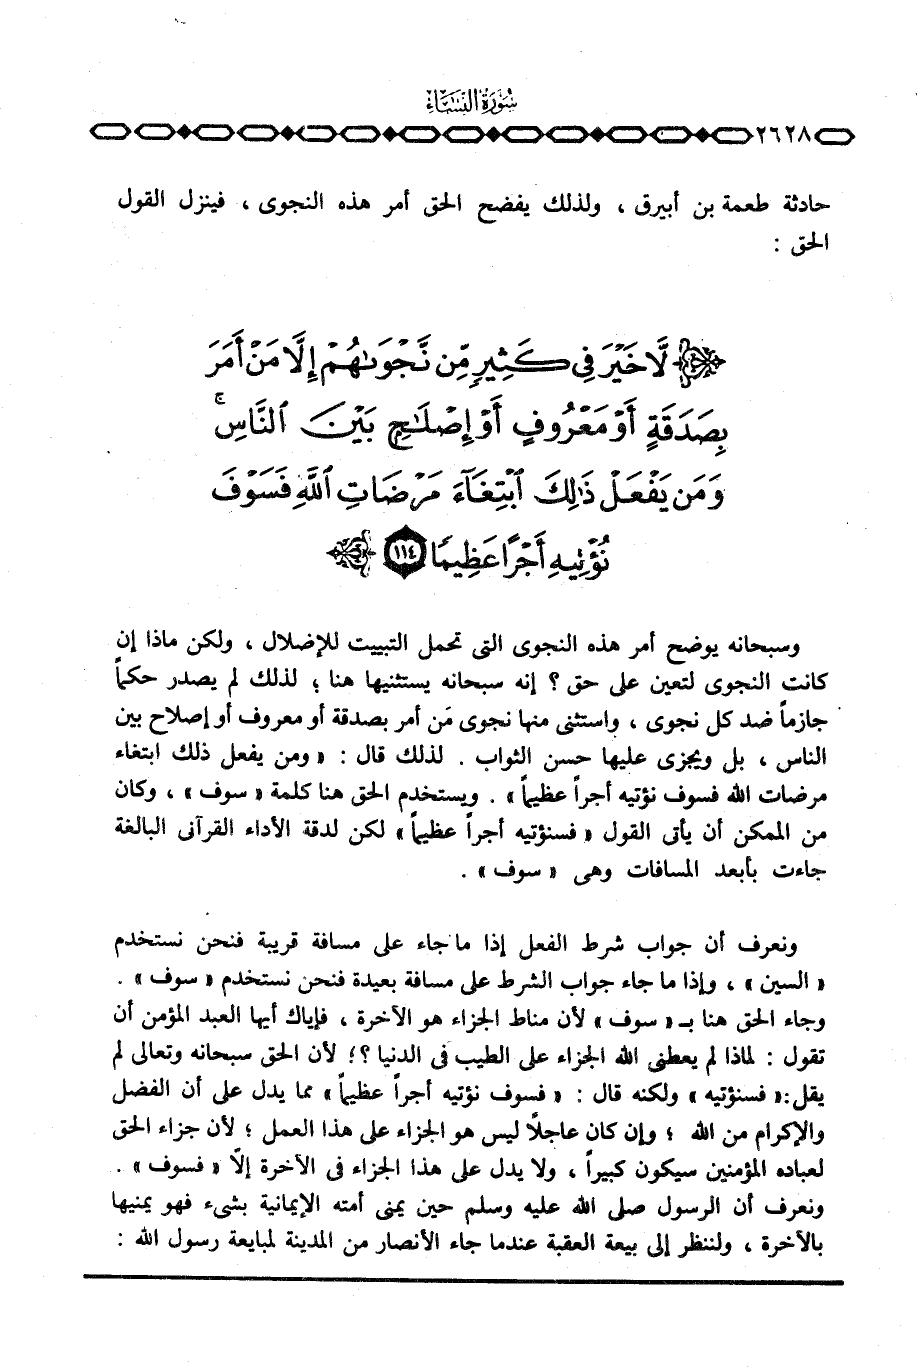 سُورَةُ النِّسَاءِ
٢٦٢٨
حادثة طعمة بن أبيرق ، ولذلك يفضح الحق أمر هذه النجوى ، فينزل القول
الحق :
لَّا خَيْرَ فِي كَثِيرٍ مِّن نَّجْوَىٰهُمْ إِلَّا مَنْ أَمَرَ
بِصَدَقَةٍ أَوْ مَعْرُوفٍ أَوْ إِصْلَٰحٍۭ بَيْنَ ٱلنَّاسِ ۚ
وَمَن يَفْعَلْ ذَٰلِكَ ٱبْتِغَآءَ مَرْضَاتِ ٱللَّهِ فَسَوْفَ
نُؤْتِيهِ أَجْرًا عَظِيمًا ١١٤
وسبحانه يوضح أمر هذه النجوى التى تحمل التبييت للإضلال ، ولكن ماذا إن
كانت النجوى لتعين على حق ؟ إنه سبحانه يستثنيها هنا ؛ لذلك لم يصدر حكماً
جازماً ضد كل نجوى ، واستثنى منها نجوى مَن أمر بصدقة أو معروف أو إصلاح بين
الناس ، بل ويجزى عليها حسن الثواب . لذلك قال : « ومن يفعل ذلك ابتغاء
مرضات الله فسوف نؤتيه أجراً عظيماً » . ويستخدم الحق هنا كلمة « سوف » ، وكان
من الممكن أن يأتى القول « فسنؤتيه أجراً عظيماً » لكن لدقة الأداء القرآنى البالغة
جاءت بأبعد المسافات وهى « سوف » .
ونعرف أن جواب شرط الفعل إذا ما جاء على مسافة قريبة فنحن نستخدم
« السين » ، وإذا ما جاء جواب الشرط على مسافة بعيدة فنحن نستخدم « سوف » .
وجاء الحق هنا بـ « سوف » لأن مناط الجزاء هو الآخرة ، فإياك أيها العبد المؤمن أن
تقول : لماذا لم يعطنى الله الجزاء على الطيب فى الدنيا ؟! لأن الحق سبحانه وتعالى لم
يقل : « فسنؤتيه » ولكنه قال : « فسوف نؤتيه أجراً عظيماً » مما يدل على أن الفضل
والإكرام من الله ؛ وإن كان عاجلًا ليس هو الجزاء على هذا العمل ؛ لأن جزاء الحق
لعباده المؤمنين سيكون كبيراً ، ولا يدل على هذا الجزاء فى الآخرة إلّا « فسوف » .
ونعرف أن الرسول صلى الله عليه وسلم حين يمنى أمته الإيمانية بشىء فهو يمنيها
بالآخرة ، ولننظر إلى بيعة العقبة عندما جاء الأنصار من المدينة لمبايعة رسول الله :